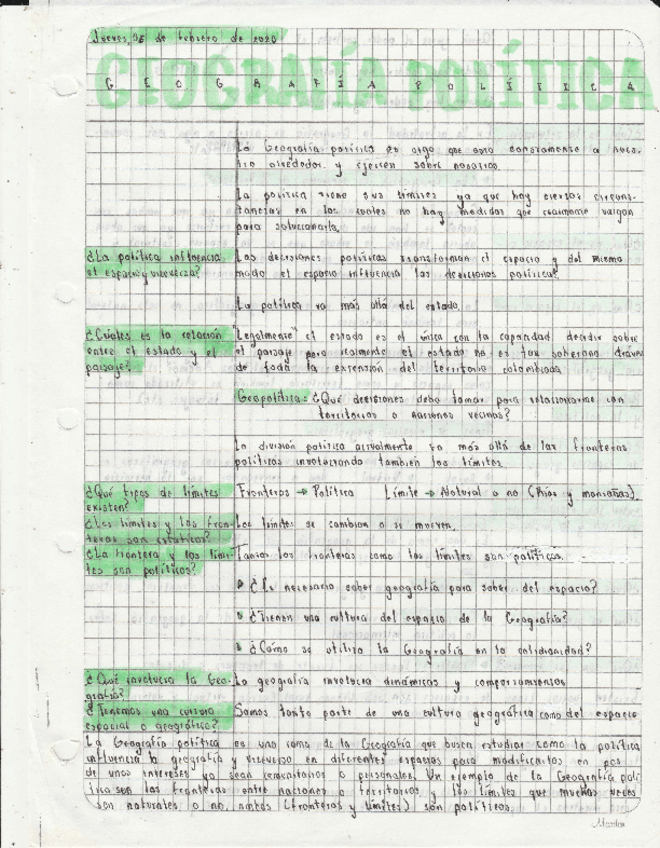 Jueves, 06 de febrero de 2020
GEOGRAFÍA POLÍTICA
La Geografía política es algo que está constantemente a nues-
tro alrededor y ejercen sobre nosotros.
La política tiene sus límites ya que hay ciertas circuns-
tancias en las cuales no hay medidas que realmente valgan
para solucionarla.
¿La política influencia
el espacio y viceversa?
Las decisiones políticas transforman el espacio y del mismo
modo el espacio influencia las decisiones políticas.
La política va más allá del estado.
¿Cuáles es la relación
entre el estado y el
paisaje?
"Legalmente" el estado es el único con la capacidad decidir sobre
el paisaje pero realmente el estado no es tan soberano
de toda la extensión del territorio colombiano
Geopolítica: ¿Qué decisiones debo tomar para relacionarme con
territorios o naciones vecinas?
La división política actualmente va más allá de las fronteras
políticas involucrando también los límites.
¿Qué tipos de límites
existen?
Fronteras → Política Límite → Natural o no (Ríos y montañas).
¿Los límites y las fron-
teras son estáticos?
Los límites se cambian o se mueven.
¿La frontera y los lími-
tes son políticos?
Tanto las fronteras como los límites son políticos.
¿Es necesario saber geografía para saber del espacio?
¿Tienen una cultura del espacio de la Geografía?
¿Cómo se utiliza la Geografía en la cotidianidad?
¿Qué involucra la Geo-
grafía?
La geografía involucra dinámicas y comportamientos
¿Tenemos una cultura
espacial o geográfica?
Somos tanto parte de una cultura geográfica como del espacio
La Geografía política es una rama de la Geografía que busca estudiar como la política
influencia la geografía y viceversa en diferentes espacios para modificarlos en pos
de unos intereses ya sean comunitarios o personales. Un ejemplo de la Geografía polí
tica son las fronteras entre naciones o territorios y los límites que muchas veces
son naturales o no, ambos (fronteras y límites) son políticos.